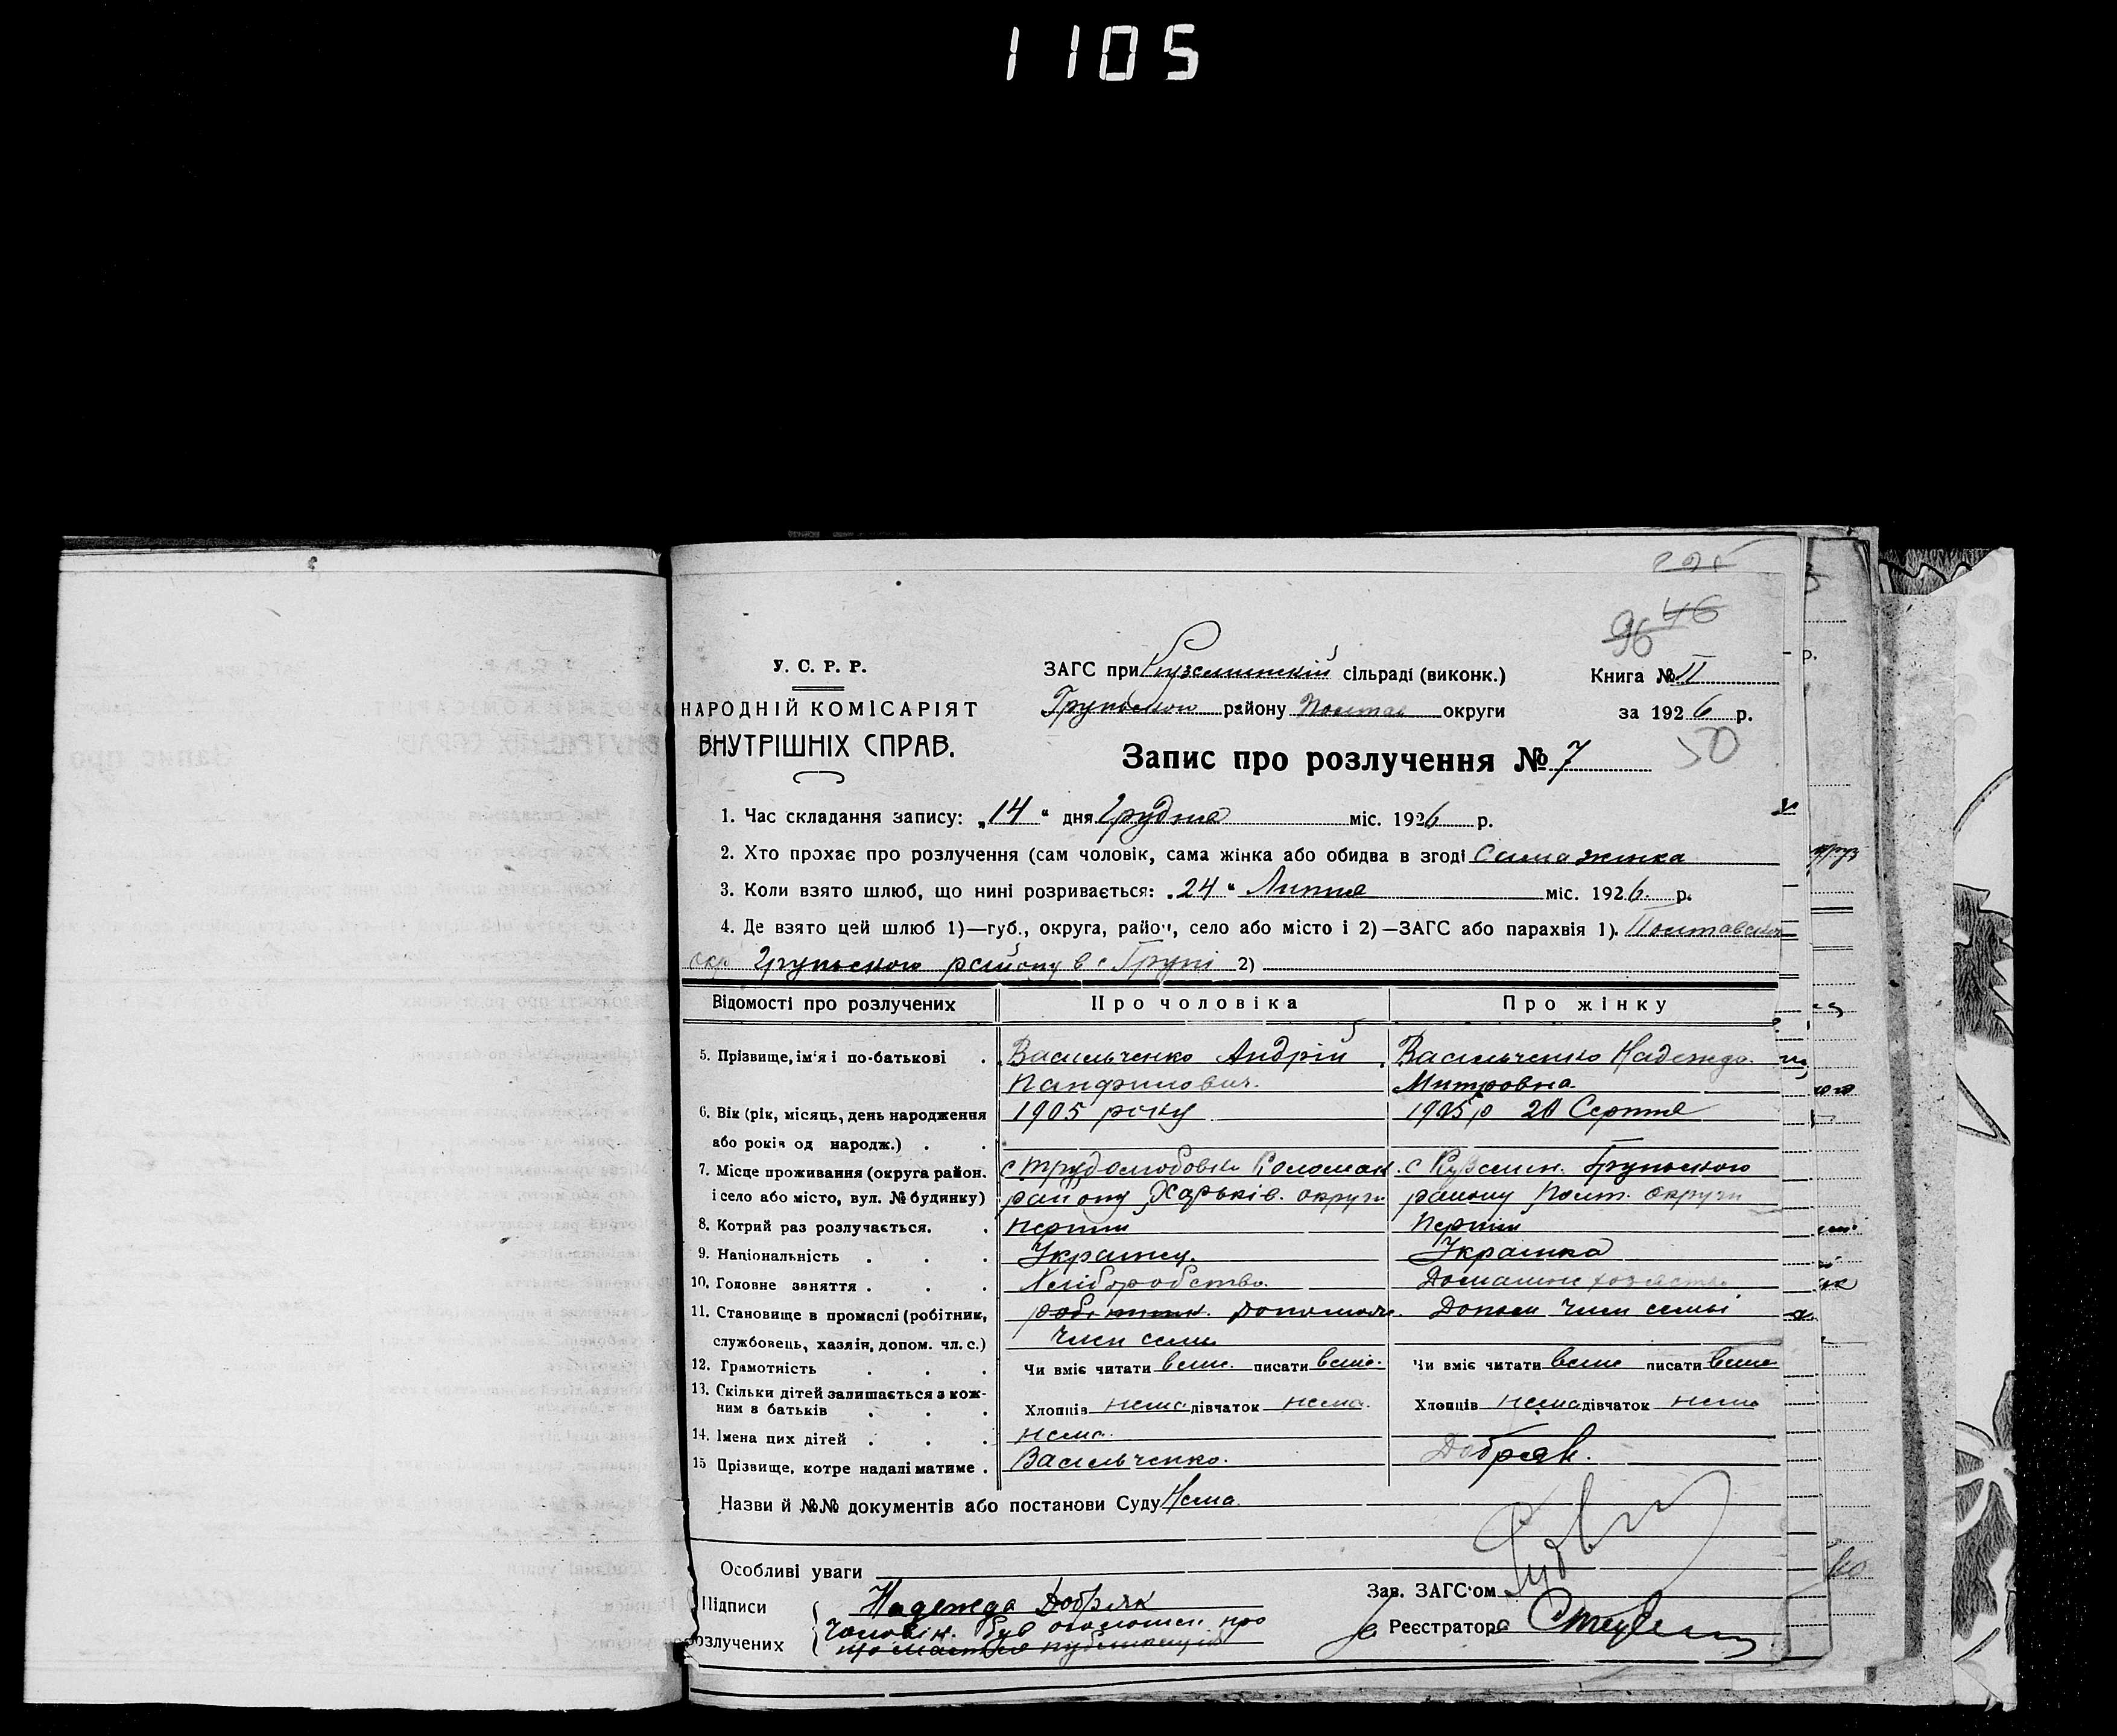 1105
96 46
У. С. Р. Р.
ЗАГС при Кузьминській сільраді (виконк.)
Книга № II
НАРОДНІЙ КОМІСАРІЯТ
Груньського району Полтав округи
за 1926 р.
ВНУТРІШНІХ СПРАВ.
50
Запис про розлучення № 7
1. Час складання запису: „14“ дня Грудня міс. 1926 р.
2. Хто прохає про розлучення (сам чоловік, сама жінка або обидва в згоді Сама жинка
3. Коли взято шлюб, що нині розривається: „24“ Липня міс. 1926 р.
4. Де взято цей шлюб 1)—губ., округа, район, село або місто і 2)—ЗАГС або парахвія 1). Полтавської
окр Груньского району в с Груні 2)
Відомості про розлучених Про чоловіка Про жінку
5. Прізвище, ім'я і по-батькові . Васильченко Андрій Васильченко Надежда
Панфилович. Митровна
6. Вік (рік, місяць, день народження 1905 року 1905 р 20 Серпня
або років од народж.) . .
7. Місце проживання (округа район. с Трудолюбовка Коломак. с Кузьмин. Груньского
і село або місто, вул. № будинку) району Харьків. округи району Полт. округи
8. Котрий раз розлучається. . перший Перший
9. Національність . . . Українец. Українка
10. Головне заняття . . . Хліборобство. Домашнє хозяство
11. Становище в промислі (робітник, робітник. допомож. Допом член семьї
службовець, хазяін, допом. чл. с.) член семьи
12. Грамотність . . . Чи вміє читати вміє писати вміє Чи вміє читати вміє писати вміє
13. Скільки дітей залишається з кож-
ним з батьків . . . Хлопців нема дівчаток нема. Хлопців нема дівчаток нема
14. Імена цих дітей . . . нема.
15 Прізвище, котре надалі матиме . Васильченко. Добряк.
Назви й №№ документів або постанови Суду Нема
Особливі уваги
Зав. ЗАГС'ом
Підписи Надежда Добряк
розлучених Чоловік. був оголошен про
Реєстратора
що мається публикация